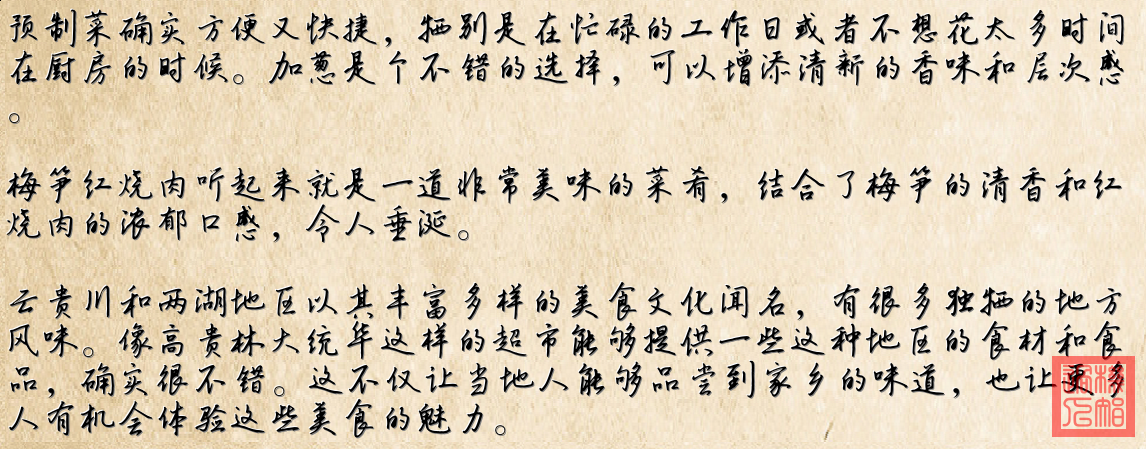 预制菜确实方便又快捷，特别是在忙碌的工作日或者不想花太多时间
在厨房的时候。加葱是个不错的选择，可以增添清新的香味和层次感
。
梅笋红烧肉听起来就是一道非常美味的菜肴，结合了梅笋的清香和红
烧肉的浓郁口感，令人垂涎。
云贵川和两湖地区以其丰富多样的美食文化闻名，有很多独特的地方
风味。像高贵林大统华这样的超市能够提供一些这种地区的食材和食
品，确实很不错。这不仅让当地人能够品尝到家乡的味道，也让更多
人有机会体验这些美食的魅力。